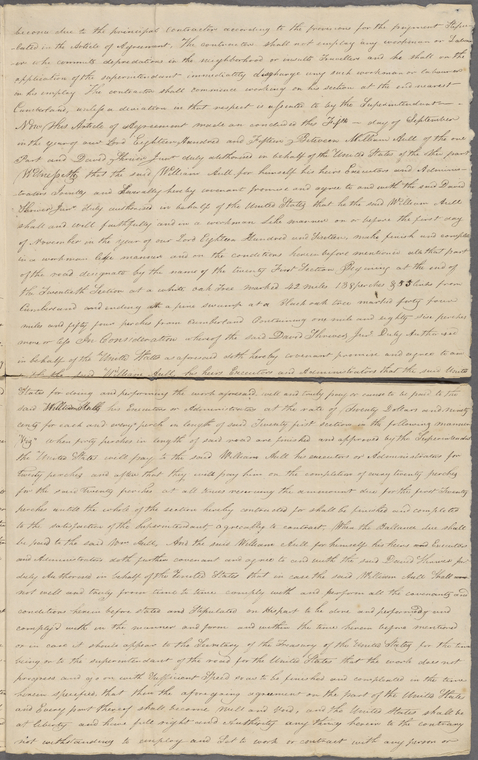 become due to the principal contractor according to the provisions for the payment stipu
lated in the Article of Agreement. The contractor shall not employ any workman or Labou
rer who commits depredations in the neighborhood or insults Travellers and he shall on the
application of the superintendant immediatley discharge any such workman or labourer
in his employ. The contractor shall commence working on his section at the end nearest
Cumberland, unless a deviation in that respect is assented to by the Superintendant
Now This Article of Agreement made and concluded this Fifth day of September
in the year of our Lord Eighteen Hundred and Fifteen Between William Aull of the one
Part and David Shriver Junr duly authorised in behalf of the United States of the other part
Witnesseth that the said William Aull for himself his heirs Executors and Adminis
trators Jointly and Severally hereby covenant promise and agree to and with the said David
Shriver Junr duly authorised in behalf of the United States that he the said William Aull
shall and will faithfully and in a workman like manner on or before the first day
of November in the year of our Lord Eighteen Hundred and make finish and complete
in a workman like manner and on the conditions herein before mentioned all that part
of the road designate by the name of the twenty First Section, Beginning at the end of
the Twentieth Section at a white oak tree marked 42 miles 138 perches & 53 links from
Cumberland and ending at a pine swamp at a Black oak tree marked forty four
miles and fifty four perches from Cumberland Containing one mile and eighty six perches
more or less In Consideration whereof the said David Shriver Junr Duly Authorised
in behalf of the United States as aforesaid doth hereby covenant promise and agree to and
with the said William Aull his heirs Executors and Administrators that the said United
States for doing and performing the work aforesaid, will and truly pay or cause to be paid to the
said William Aull his Executors or Administrators at the rate of Twenty Dollars and
cents for each and every perch in length of said Twenty first section in the following manner
Viz when forty perches in length of said road are finished and approved by the Superintendant
the United States will pay to the said William Aull his executors or Administrators for
twenty perches and after that they will pay him on the completion of every twenty perches
for the said twenty perches at all times reserving the amount due for the first Twenty
perches untill the whole of the section hereby contracted for shall be finished and completed
to the satisfaction of the Superintendant agreeably to contract. When the Ballance due shall
be paid to the said Wm Aull. And the said William Aull for himself his heirs and Executors
and Administrators doth further covenant and agree to and with the said David Shriver Jnr
duly Authorised in behalf of the United States that in case the said William Aull shall
not well and truly from time to time comply with and perform all the covenants and
conditions herein before stated and stipulated on his part to be done and performed and
complyed with in the manner and form and within the time herein before mentioned
or in case it should appear to the Secretary of the Treasury of the United States for the time
being or to the superintendant of the road for the United States that the work does not
progress and go on with sufficient speed so as to be finished and completed in the time
herein specifies that then the aforegoing agreement on the part of the United States
and Every part thereof shall become Null and Void, and the United States shall be
at liberty and have full right and Authority any thing herein to the contrary
not withstanding to employ and Set to work or contract with any person or